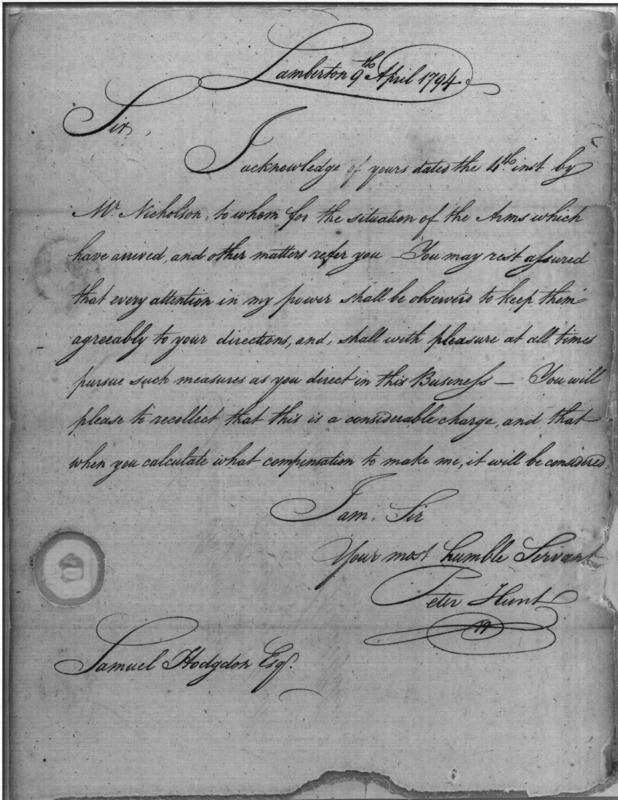 Lamberton 9th April 1794
Sir,
I acknowledge of yours dated the 4th. inst by
Mr. Nicholson, to whom for the situation of the Arms which
have arrived, and other matters refer you – You may rest assured
that every attention in my power shall be observ'd to keep them
agreeably to your directions, and, shall with pleasure at all times
pursue such measures as you direct in this Business – You will
please to recollect that this is a considerable charge, and that
when you calculate what compensation to make me, it will be considered
I am, Sir
Your most humble Servant
Peter Hunt
Samuel Hodgdon Esqr.